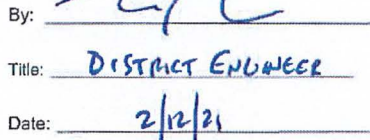 By:
Title: DISTRICT ENGINEER
Date: 2/12/21